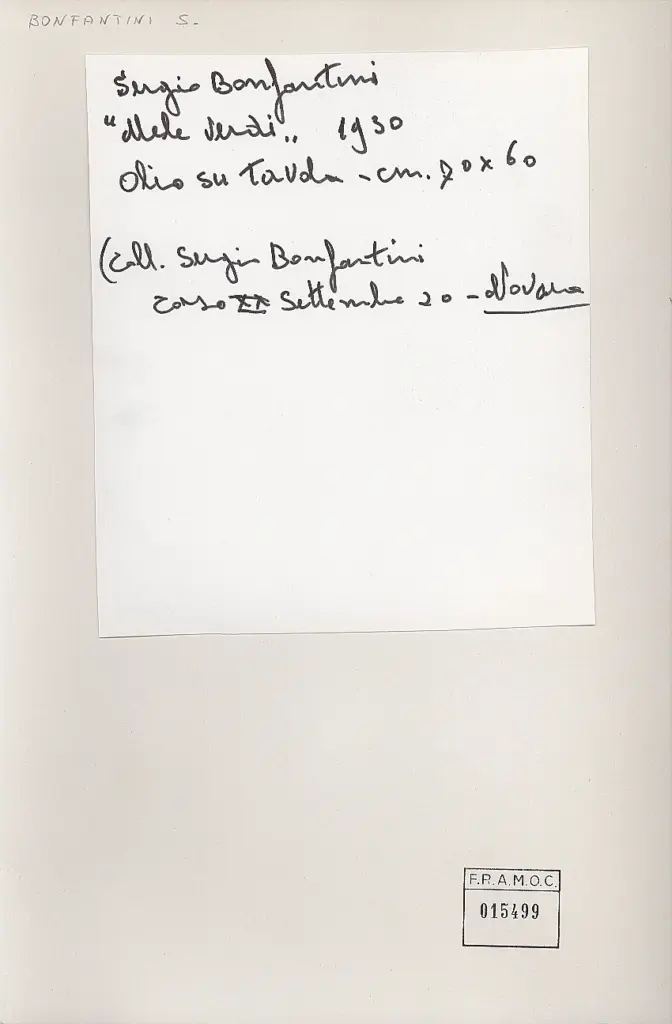 BONFANTINI S.
Sergio Bonfantini
"Mele verdi„ 1930
olio su tavola - cm. 70 x 60
(Coll. Sergio Bonfantini
corso XX Settembre 20 - Novara
F.R.A.M.O.C.
015499